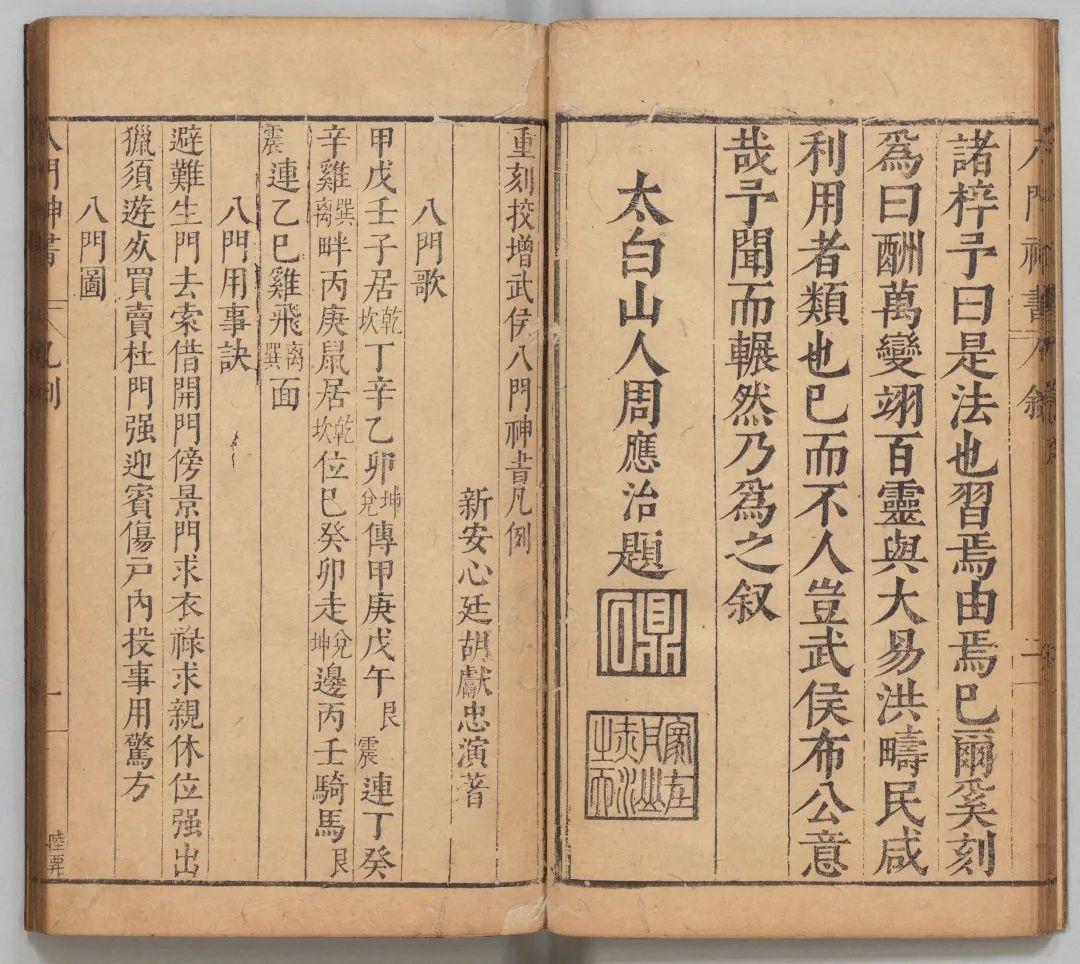 諸梓予曰是法也習焉由焉已爾奚刻
爲曰酬萬變翊百靈與大易洪疇民咸
利用者類也已而不人豈武侯布公意
哉予聞而輾然乃爲之叙
太白山人周應治題
重刻挍增武侯八門神書凡例
新安心廷胡獻忠演著
八門歌
甲戊壬子居乾坎丁辛乙卯坤兌傳甲庚戊午艮震連丁癸
辛雞巽離畔丙庚鼠居乾坎位巳癸卯走兌坤邊丙壬騎馬艮
震連乙巳雞飛離巽面
八門用事訣
避難生門去索借開門傍景門求衣祿求親休位强出
獵須遊炏買賣杜門强迎賓傷戸內投事用驚方
八門圖
八門神書
凡例
一